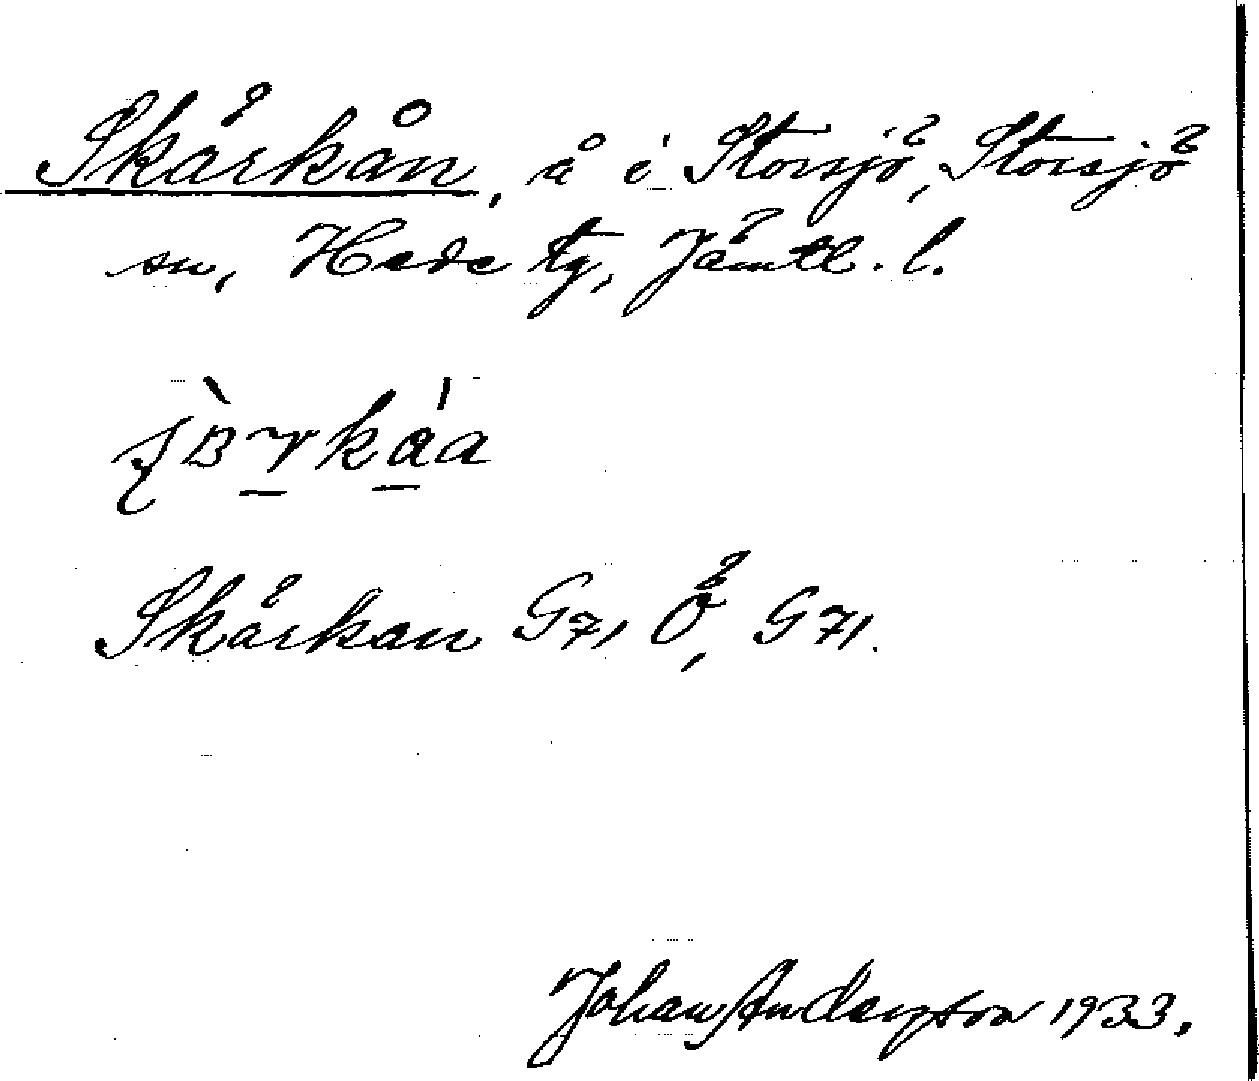 Skärkån, å i Storsjö, Storsjö
sn, Hede tg, Jämtl. l.
Skärkan G71 Ö, G71.
Johan Andersson 1933.